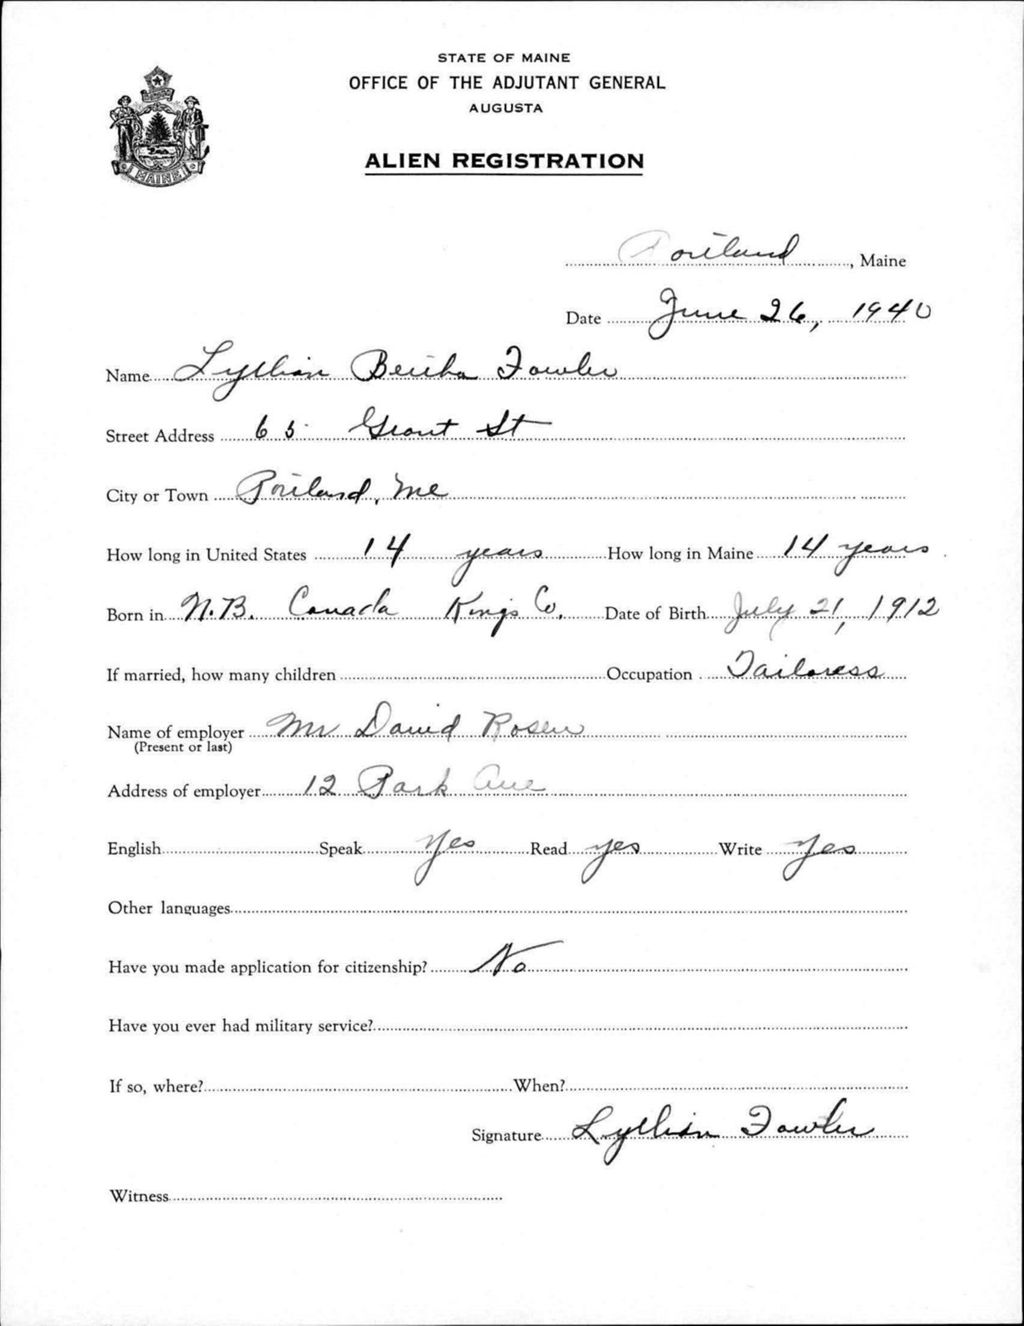 STATE OF MAINE
OFFICE OF THE ADJUTANT GENERAL
AUGUSTA
MAINE
ALIEN REGISTRATION
Portland, Maine
Date June 26, 1940
Name Lyllian Bertha Fowler
Street Address 65 Grant St
City or Town Portland, Me
How long in United States 14 years How long in Maine 14 years
Born in N.B. Canada Kings Co. Date of Birth July 21, 1912
If married, how many children Occupation Tailoress
Name of employer Mr David Rosen
(Present or last)
Address of employer 12 Park Ave
English Speak Yes Read yes Write Yes
Other languages
Have you made application for citizenship? No
Have you ever had military service?
If so, where? When?
Signature Lyllian Fowler
Witness